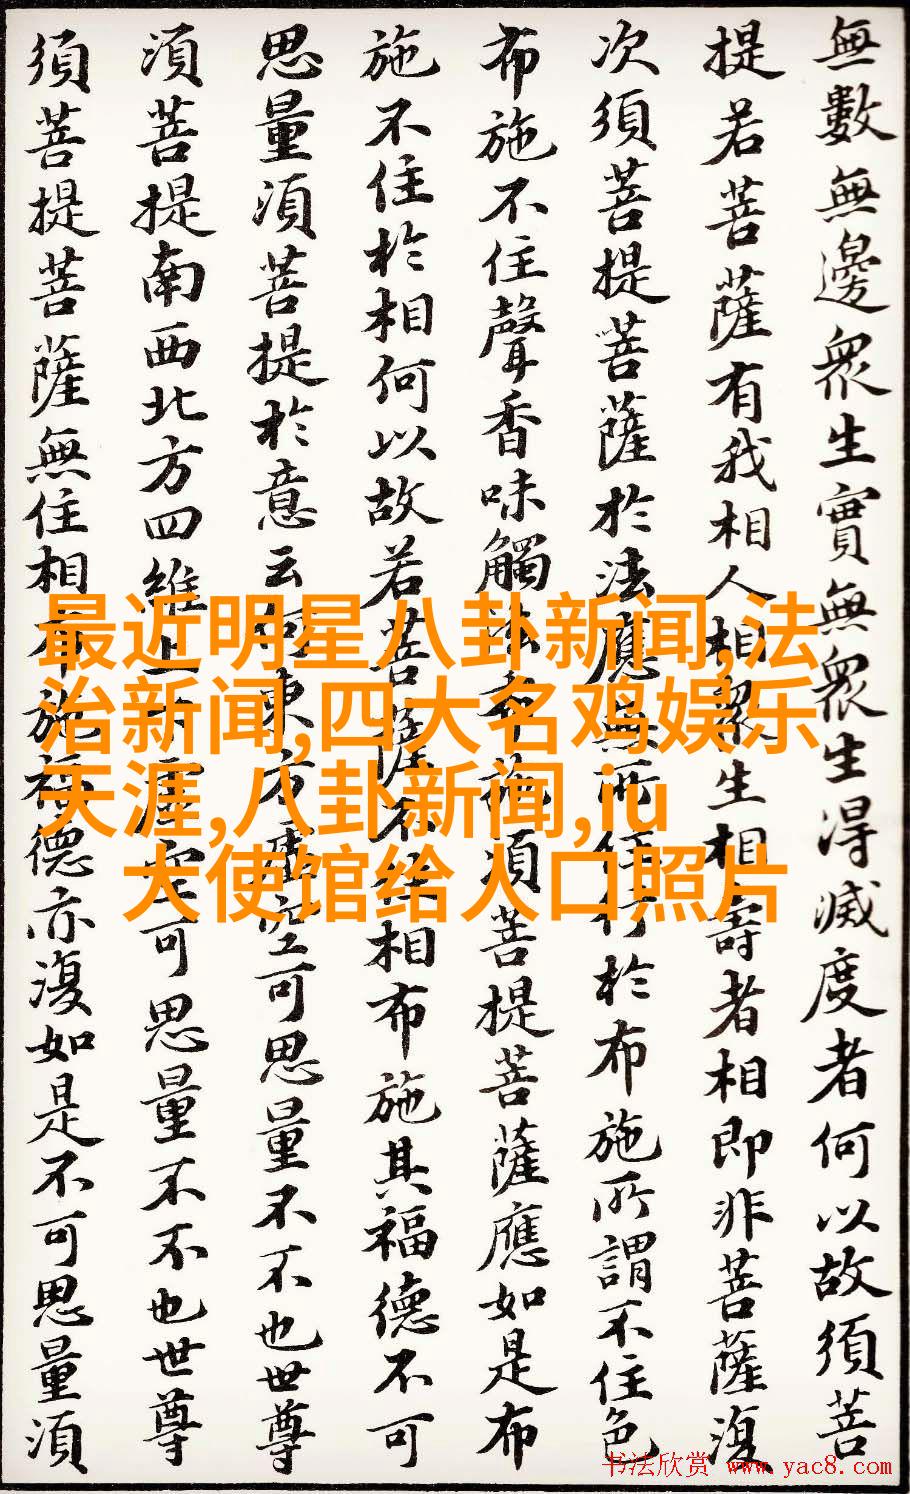 無數無邊眾生實無眾生得滅度者何以故須菩
提若菩薩有我相人相眾生相壽者相即非菩薩復
次須菩提菩薩於法應無所住行於布施所謂不住色
布施不住聲香味觸法布施須菩提菩薩應如是布
施不住於相何以故若菩薩不住相布施其福德不可
思量須菩提於意云何東方虛空可思量不不也世尊
須菩提南西北方四維上下虛空可思量不不也世尊
須菩提菩薩無住相布施福德亦復如是不可思量須
最近明星八卦新闻,法
治新闻,四大名鸡娱乐
天涯,八卦新闻,iu
大使馆给人口照片
书法欣赏 www.yac8.com